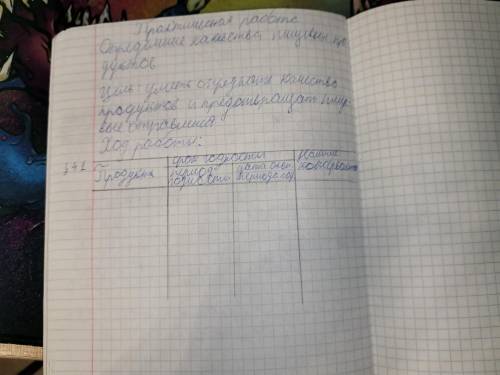 Практическая работа
Определение качества пищевых про
дуктов
Цель: уметь определять качество
продуктов и предотвращать пище-
вые отравления
Ход работы:
Продукты срок годности
период
годности дата